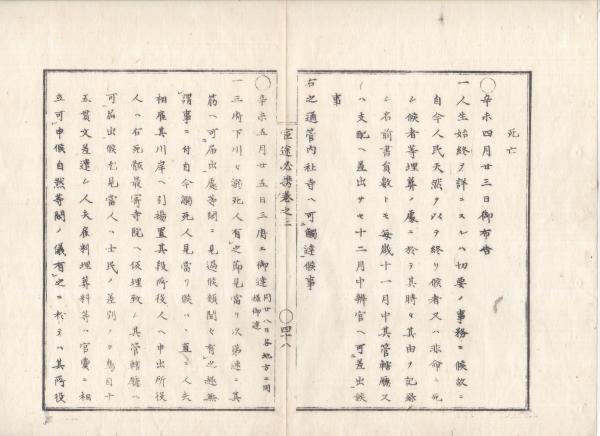 死亡
○辛未四月廿三日御布告
一人生始終ヲ詳ニスルハ切要ノ事務ニ候故ニ
自今人民天然ヲ以テ終リ候者又ハ非命ニ死
シ候者等埋葬ノ處ニ於テ其時々其由ヲ記録
シ名前書員數トモ毎歳十一月中其管轄廳又
ハ支配ヘ差出サセ十二月中辨官ヘ可差出候
事
右之通管内社寺ヘ可觸達候事
宦途必携巻之三
○四十八
○辛未五月廿五日三府ヱ御達 同廿八日各地方ニ同樣御達
一三府下川々溺死人有之節見當リ次第速ニ其
筋ヘ可届出處等閑ニ見過候類間々有之趣無
謂事ニ付自今溺死人見當リ候ハヽ直ニ人夫
相雇其川岸ヘ引揚置其段所役人ヘ申出所役
人ハ右死骸最寄寺院ヘ仮埋致シ其管轄廳ヘ
可届出候尤見當人ヘ士民ノ差別ナク鳥目十
五貫文差遣シ人夫雇料埋葬料等ハ官費ニ相
立可申候自然等閑ノ儀有之ニ於テハ其所役